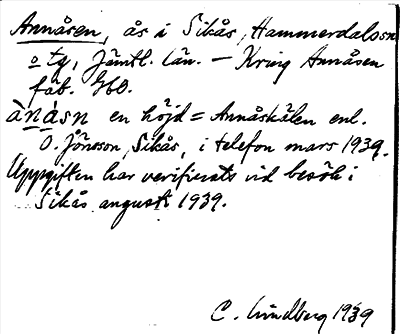 Annåsen, ås i Sikås, Hammerdals sn
o ty, Jämtl. län. – Kring Annåsen
fäb. GK.
ànásn en höjd = Annåskälen enl.
O. Jönsson, Sikås, i telefon mars 1939.
Uppgiften har verifierats vid besök i
Sikås augusti 1939.
C. Lindberg 1939